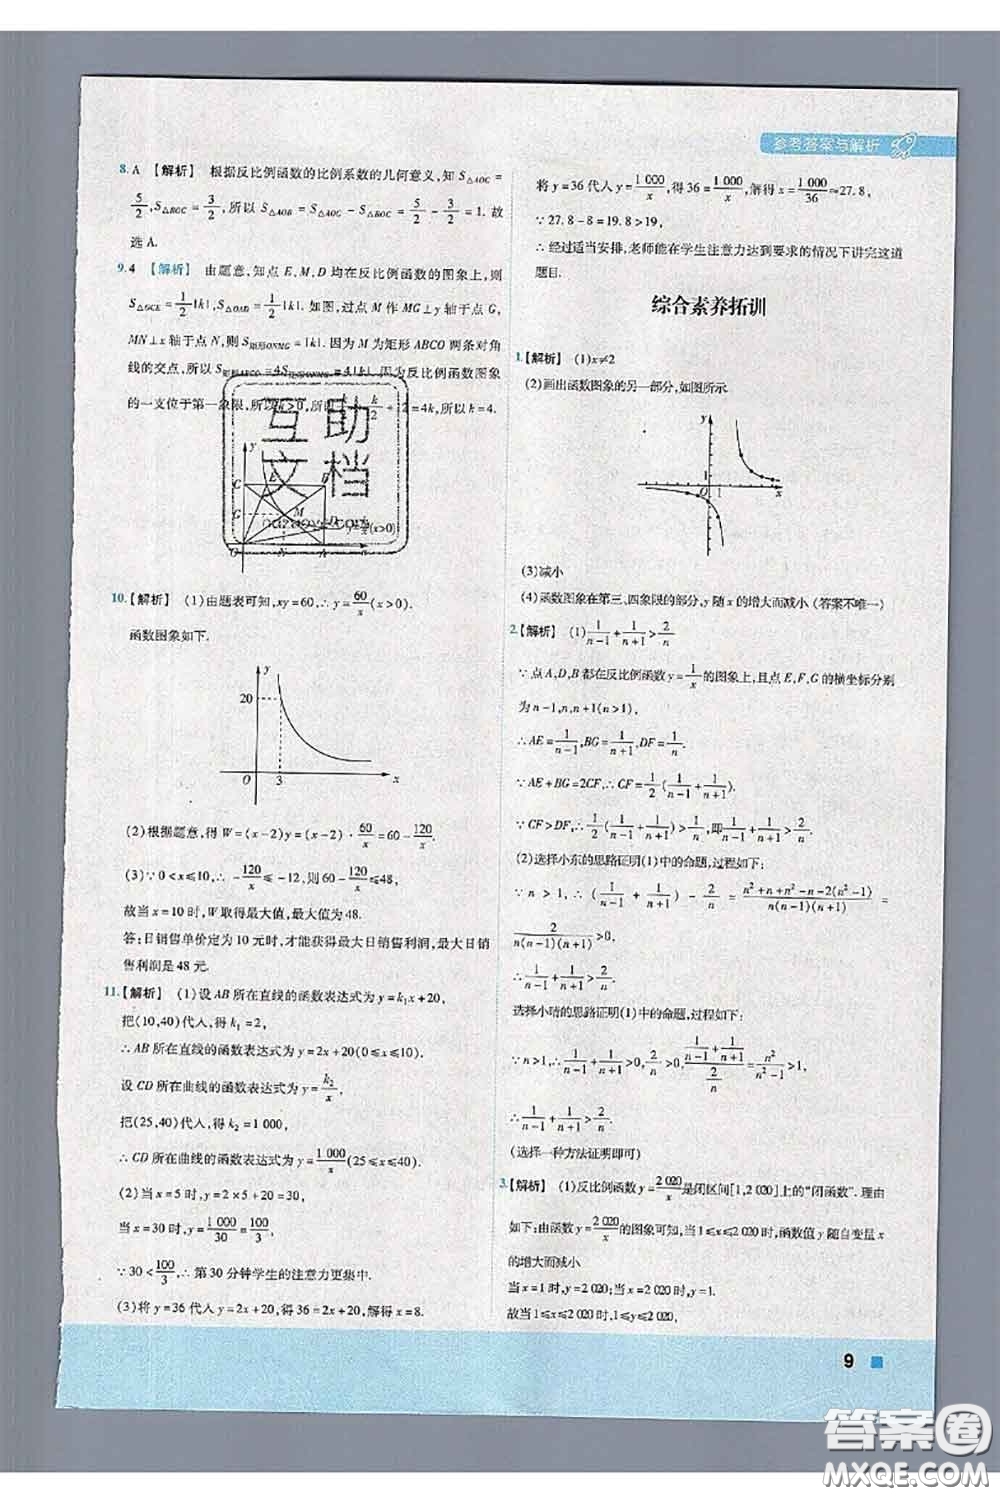 参考答案与解析
8. A 【解析】 根据反比例函数的比例系数的几何意义,知 S△AOC =
5/2, S△BOC = 3/2, 所以 S△AOB = S△AOC − S△BOC = 5/2 − 3/2 = 1. 故
选 A.
9. 4 【解析】 由题意,知点 E,M,D 均在反比例函数的图象上,则
S△OCE = 1/2|k|, S△OAD = 1/2|k|. 如图,过点 M 作 MG⊥y 轴于点 G,
MN⊥x 轴于点 N,则 S矩形ONMG = |k|. 因为 M 为矩形 ABCO 两条对角
线的交点,所以 S矩形ABCO = 4S矩形ONMG = 4|k|. 因为反比例函数图象
的一支位于第一象限,所以 k>0,所以 k/2 + k/2 + 12 = 4k,所以 k = 4.
y
C E B
G M
D y=k/x(x>0)
O N A x
10.【解析】 (1)由题表可知,xy=60,∴ y=60/x(x>0).
函数图象如下.
y
20
O 3 x
(2)根据题意,得 W=(x−2)y=(x−2)·60/x=60−120/x.
(3)∵ 0<x≤10,∴ −120/x≤−12,则60−120/x≤48,
故当 x=10 时,W 取得最大值,最大值为 48.
答:日销售单价定为 10 元时,才能获得最大日销售利润,最大日销
售利润是 48 元.
11.【解析】 (1)设 AB 所在直线的函数表达式为 y=k₁x+20,
把(10,40)代入,得 k₁=2,
∴ AB 所在直线的函数表达式为 y=2x+20(0≤x≤10).
设 CD 所在曲线的函数表达式为 y=k₂/x,
把(25,40)代入,得 k₂=1 000,
∴ CD 所在曲线的函数表达式为 y=1 000/x(25≤x≤40).
(2)当 x=5 时,y=2×5+20=30,
当 x=30 时,y=1 000/30=100/3,
∵ 30<100/3,∴ 第 30 分钟学生的注意力更集中.
(3)将 y=36 代入 y=2x+20,得 36=2x+20,解得 x=8.
将 y=36 代入 y=1 000/x,得 36=1 000/x,解得 x=1 000/36≈27.8,
∵ 27.8−8=19.8>19,
∴ 经过适当安排,老师能在学生注意力达到要求的情况下讲完这道
题目.
综合素养拓训
1.【解析】 (1)x≠2
(2)画出函数图象的另一部分,如图所示.
y
1
O 1 x
(3)减小
(4)函数图象在第三、四象限的部分,y 随 x 的增大而减小(答案不唯一)
2.【解析】 (1)1/(n−1)+1/(n+1)>2/n
∵ 点 A,D,B 都在反比例函数 y=1/x 的图象上,且点 E,F,G 的横坐标分别
为 n−1,n,n+1(n>1),
∴ AE=1/(n−1),BG=1/(n+1),DF=1/n.
∵ AE+BG=2CF,∴ CF=1/2(1/(n−1)+1/(n+1)).
∵ CF>DF,∴ 1/2(1/(n−1)+1/(n+1))>1/n,即1/(n−1)+1/(n+1)>2/n.
(2)选择小东的思路证明(1)中的命题,过程如下:
∵ n>1,∴ (1/(n−1)+1/(n+1))−2/n=(n²+n+n²−n−2(n²−1))/(n(n−1)(n+1))=
2/(n(n−1)(n+1))>0,
∴ 1/(n−1)+1/(n+1)>2/n.
选择小晴的思路证明(1)中的命题,过程如下:
∵ n>1,∴ 1/(n−1)+1/(n+1)>0,2/n>0,(1/(n−1)+1/(n+1))/(2/n)=n²/(n²−1)>1,
∴ 1/(n−1)+1/(n+1)>2/n.
(选择一种方法证明即可)
3.【解析】 (1)反比例函数 y=2 020/x 是闭区间[1,2 020]上的“闭函数”. 理由
如下:由函数 y=2 020/x 的图象可知,当 1≤x≤2 020 时,函数值 y 随自变量 x
的增大而减小.
当 x=1 时,y=2 020;当 x=2 020 时,y=1.
故当 1≤x≤2 020 时,1≤y≤2 020,
9
互助
文档
答案圈
MXQE.COM